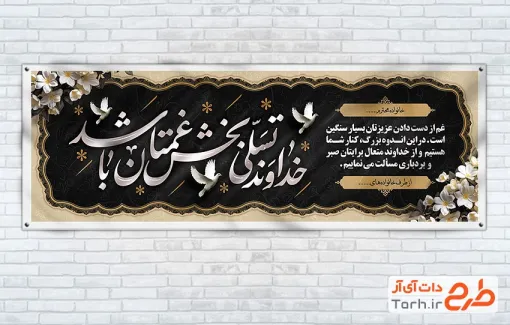 خداوند تسلی بخش غمتان باشد
خانواده محترم .....
غم از دست دادن عزیزتان بسیار سنگین
است. در این اندوه بزرگ، کنار شما
هستیم و از خداوند متعال برایتان صبر
و بردباری مسألت می نماییم.
از طرف خانواده های .....
طرح دات آی آر
Tarh.ir